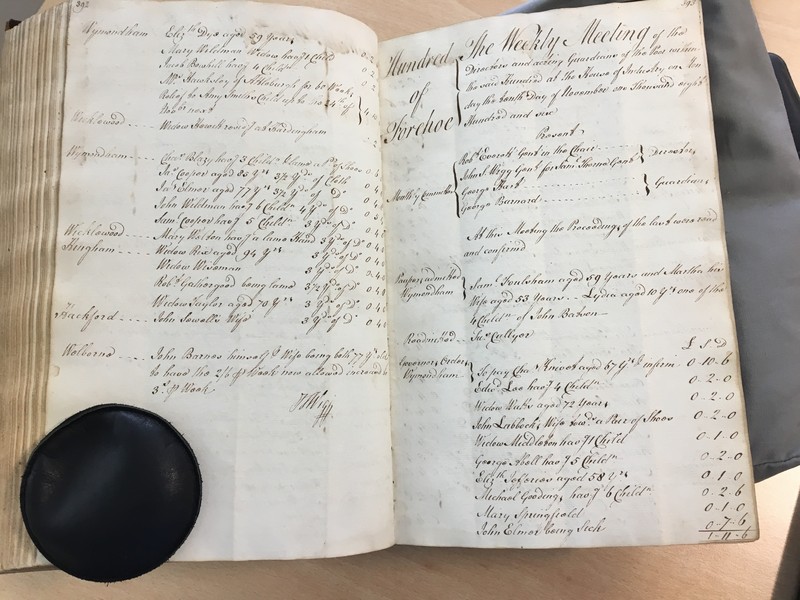 392
Wymondham Eliz.th Dye aged 59 Years
Mary Wildman Widow has 1 Child
has 4 Child.n
of Attleburgh for be Week
Relief to Amy Smiths Child up to no 24th of
Nov.r next
Wicklewood Widow at Hardingham
Wymondham Blazy has 3 Child.n
Ja.s Cooper aged 83 Y.rs 3½ Y.ds of Cloth
Ja.s Elmer aged 77 Y.rs 3½ Y.ds of D.o
John Wildman has 6 Child.n 4 Y.ds of D.o
Sam.l Cooper has 5 Child.n 3 Y.ds of D.o
Wicklewood Mary Walton has a lame Hand 3 Y.ds of D.o
Hengham Widow Rix aged 94 Y.rs 3 Y.ds of D.o
Widow Wiseman 3 Y.ds of D.o
Rob.t Gathergood being lame 3½ Y.ds of D.o
Widow Taylor aged 70 Y.rs 3 Y.ds of D.o
Hackford John Sewell's Wife 3 Y.ds of D.o
Welborne John Barnes himself & Wife being both 77 Y.rs old
to have the 2/6 p.r Week now allowed increased to
3.s p.r Week
393
Hundred of Forehoe
The Weekly Meeting of the
Directors and acting Guardians of the Poor within
the said Hundred at the House of Industry on Mon
day the tenth Day of November one Thousand eight
Hundred and six
Present
Monthly Committee
Rob.t Everett Gent in the Chair
John S. Wigg Gent for Sam.l Thorne Gent
Directors
George Hart
George Barnard
Guardians
At this Meeting the Proceedings of the last were read
and confirmed
Paupers admitted
Wymondham
Sam.l Foulsham aged 59 Years and Martha his
Wife aged 53 Years Lydia aged 10 Y.rs one of the
4 Child.n of John Batson
Readmitted Ja.s Cullyer
£ S D
Governors Orders
Wymondham
To pay Cha.s Knivet aged 67 Y.rs & infirm 0-10-6
Edw.d Loo has 4 Child.n 0-2-0
Widow aged 72 Years 0-2-0
John Lubbock's Wife tow.ds a Pair of Shoes 0-2-0
Widow Middleton has 1 Child 0-1-0
George Abell has 5 Child.n 0-2-0
Eliz.th Jefferies aged 58 Y.rs 0-1-0
Michael Gooding has 6 Child.n 0-2-6
Mary Springfield 0-1-0
John Elmer being Sick 0-7-6
1-11-6